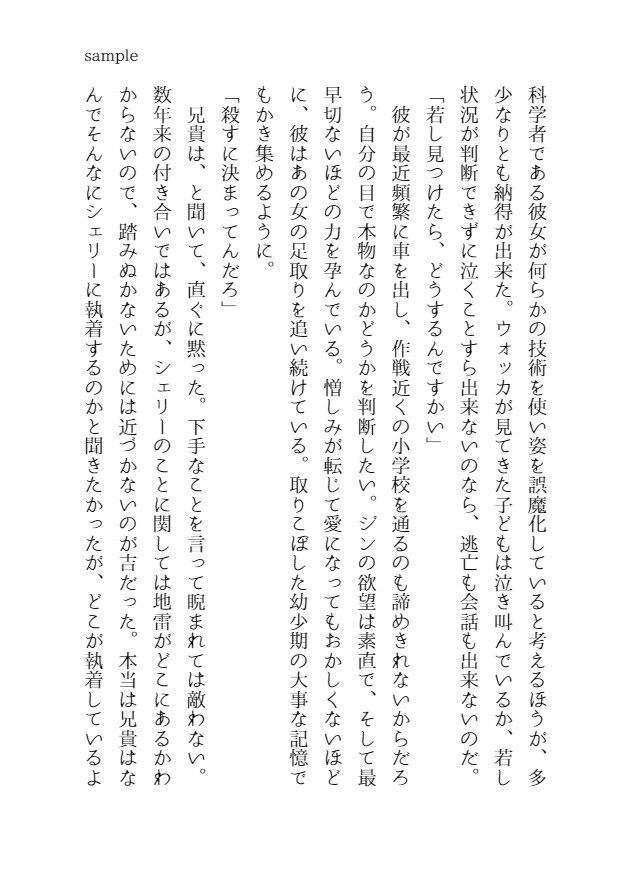 sample
科学者である彼女が何らかの技術を使い姿を誤魔化していると考えるほうが、多
少なりとも納得が出来た。ウォッカが見てきた子どもは泣き叫んでいるか、若し
状況が判断できずに泣くことすら出来ないのなら、逃亡も会話も出来ないのだ。
「若し見つけたら、どうするんですかい」
　彼が最近頻繁に車を出し、作戦近くの小学校を通るのも諦めきれないからだろ
う。自分の目で本物なのかどうかを判断したい。ジンの欲望は素直で、そして最
早切ないほどの力を孕んでいる。憎しみが転じて愛になってもおかしくないほど
に、彼はあの女の足取りを追い続けている。取りこぼした幼少期の大事な記憶で
もかき集めるように。
「殺すに決まってんだろ」
　兄貴は、と聞いて、直ぐに黙った。下手なことを言って睨まれては敵わない。
数年来の付き合いではあるが、シェリーのことに関しては地雷がどこにあるかわ
からないので、踏みぬかないためには近づかないのが吉だった。本当は兄貴はな
んでそんなにシェリーに執着するのかと聞きたかったが、どこが執着しているよ